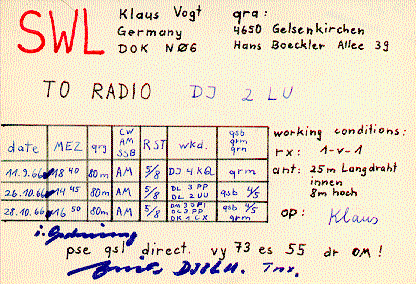 SWL
Klaus Vogt
Germany
DOK NØ6
qra:
4650 Gelsenkirchen
Hans Boeckler Allee 39
TO RADIO DJ 2 LU
date MEZ qrg CW AM SSB RST wkd. qsb qrm qrn
11.9.66 18 40 80m AM 5/8 DJ 4 KQ qrm
26.10.66 14 45 80m AM 5/8 DL 3 PP DL 2 UU qsb 4/5
28.10.66 16 50 80m AM 5/8 DL 3 PP DK 1 CX qsb 4/5 qrm
working conditions:
rx: 1-v-1
ant: 25m Langdraht
innen
8m hoch
op: Klaus
pse qsl direct. vy 73 es 55 dr OM!
DJ2LU. Tnx.